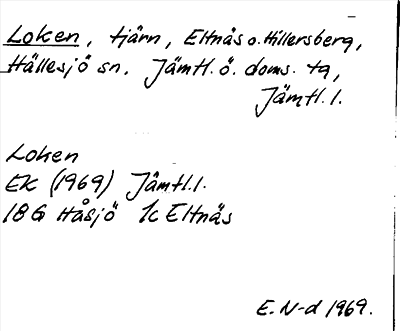 Loken, tjärn, Eltnäs o. Hillersberg,
Hällesjö sn. Jämtl. ö. doms. tg,
Jämtl. l.
Loken
EK (1969) Jämtl.l.
18G Håsjö 1c Eltnäs
E. N-d 1969.